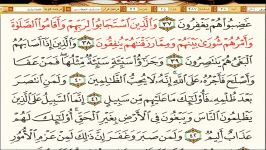 غَضِبُوا۟ هُمْ يَغْفِرُونَ ٣٧ وَٱلَّذِينَ ٱسْتَجَابُوا۟ لِرَبِّهِمْ وَأَقَامُوا۟ ٱلصَّلَوٰةَ
وَأَمْرُهُمْ شُورَىٰ بَيْنَهُمْ وَمِمَّا رَزَقْنَٰهُمْ يُنفِقُونَ ٣٨ وَٱلَّذِينَ إِذَآ أَصَابَهُمُ
ٱلْبَغْىُ هُمْ يَنتَصِرُونَ ٣٩ وَجَزَٰٓؤُا۟ سَيِّئَةٍ سَيِّئَةٌ مِّثْلُهَا فَمَنْ عَفَا
وَأَصْلَحَ فَأَجْرُهُۥ عَلَى ٱللَّهِ إِنَّهُۥ لَا يُحِبُّ ٱلظَّٰلِمِينَ ٤٠ وَلَمَنِ ٱنتَصَرَ
بَعْدَ ظُلْمِهِۦ فَأُو۟لَٰٓئِكَ مَا عَلَيْهِم مِّن سَبِيلٍ ٤١ إِنَّمَا ٱلسَّبِيلُ عَلَى ٱلَّذِينَ
يَظْلِمُونَ ٱلنَّاسَ وَيَبْغُونَ فِى ٱلْأَرْضِ بِغَيْرِ ٱلْحَقِّ أُو۟لَٰٓئِكَ لَهُمْ
عَذَابٌ أَلِيمٌ ٤٢ وَلَمَن صَبَرَ وَغَفَرَ إِنَّ ذَٰلِكَ لَمِنْ عَزْمِ ٱلْأُمُورِ